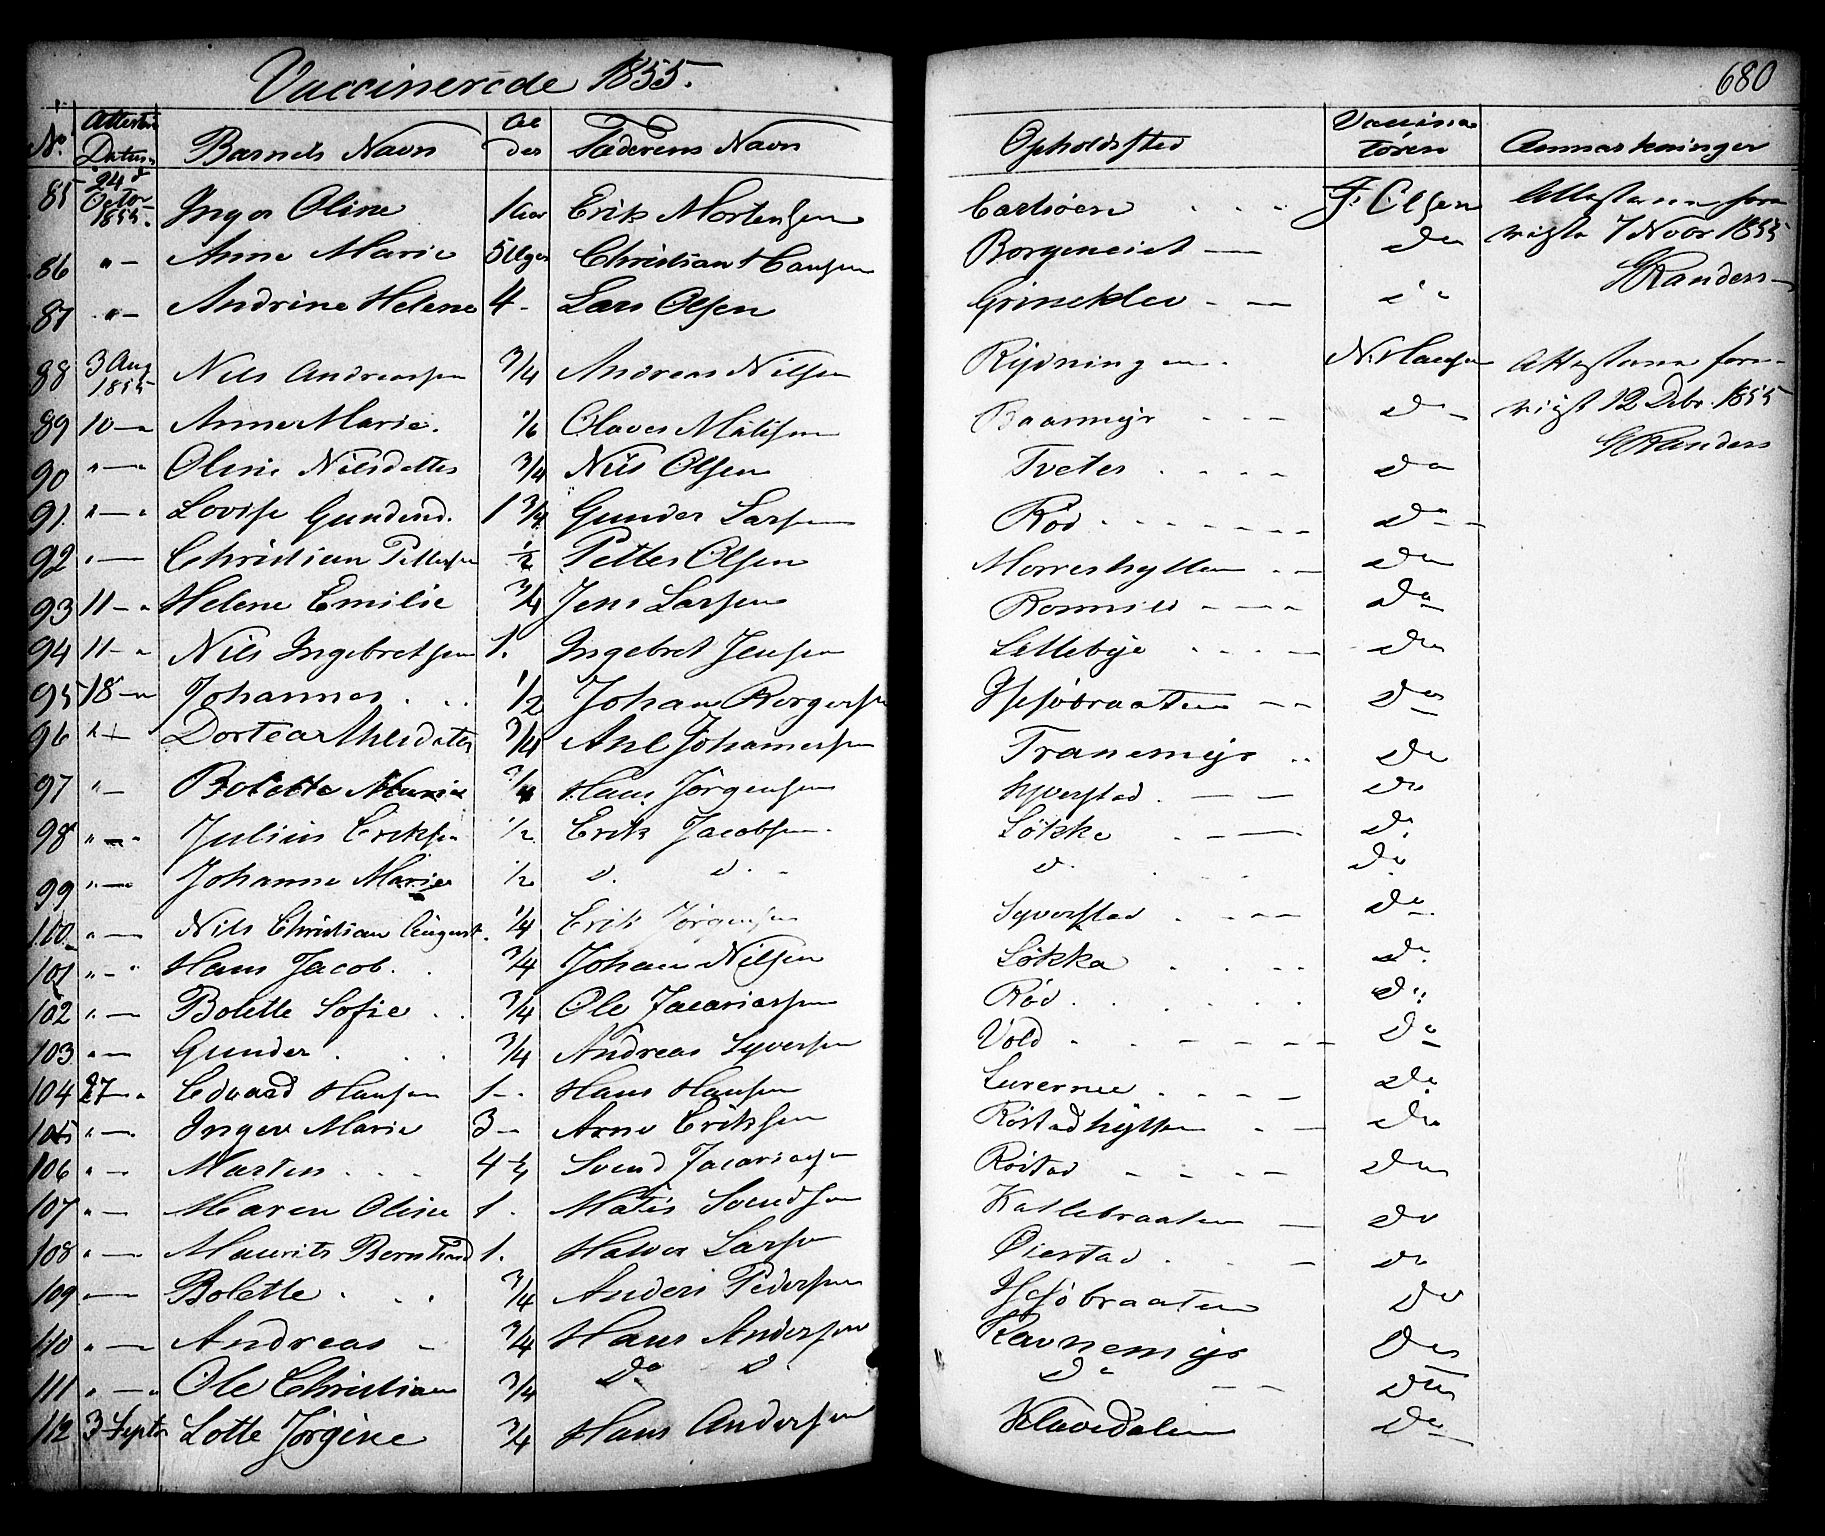 Vaccinerede 1855.
680
No. Attestens Datum Barnets Navn Alder Faderens Navn Opholdssted Vaccinatören Anmærkninger
85 24de Octor 1855. Inger Oline 1 Aar Erik Mortensen F. Olsen
86 " — Anne Marie 5 Uger Christian Hansen Do
87 " — Andrine Helene 4 - Lars Olsen Grineklev - —
7 Novbr 1855
G Randers
88 3 Aug 1855 Nils Andreassen 3/4 Andreas Nilsen Rydningen. N. Hansen
89 10 — " Anne Marie. 1/6 Olaves Matisen Baanmyr Do
12 Debr. 1855
G Randers
90 " — " Oline Nilsdatter 3/4 Nils Olsen Tveter Do
91. " — " Lovise Gundersd. 1 3/4 Gunder Larsen Röd Do
92 " — Christian Pettersen 1/2 Petter Olsen Morrishytten Do
93 11 — " Helene Emilie 3/4 Jens Larsen Do
94 11 — " Nils Ingebretsen 1. Ingebret Jensen Lillebye Do
95 18 — " Johannes 1/2 Johan Borgersen Hesjöbraaten Do
96 " — Dortea Axelsdatter 3/4 Axl Johannesen Tranemyr Do
97 " — Bolette Maria 3/4 Hans Jörgensen Syverstad. Do
98 " — " Julius Eriksen 1/2 Erik Jacobsen Lökka Do
99 " — Johanne Marie 1/2 d. d. d. Do
100 " — Nils Christian August. 1/4 Erik Jörgensen Syverstad Do
101 " — " Hans Jacob. 3/4 Johan Nilsen Lökka Do
102 " — Bolette Sofie 3/4 Ole Jacariassen Röd Do
103 " — Gunder 3/4 Andreas Syversen Vold Do
104 27 — " Edvard Hansen 1 - Hans Hansen Do
105 " — Inger Marie 3 — Arne Eriksen Röstadhytten Do
106 " — Marten 4 1/2 Svend Jacariasen Röstad Do
107 " — Maren Oline 1. Matis Svendsen Kattebraaten Do
108 " — Maurits Bernhard 1. Halvor Larsen Öierstad Do
109 — Bolette 3/4 Anders Pedersen Hesjöbraaten Do
110 " — Andreas 3/4 Hans Andersen Ravnemyr Do
111 " — " Ole Christian 3/4 Do d. Do Do
112 3 Septbr Lotte Jörgine 3/4 Hans Andersen Klavedalen Do